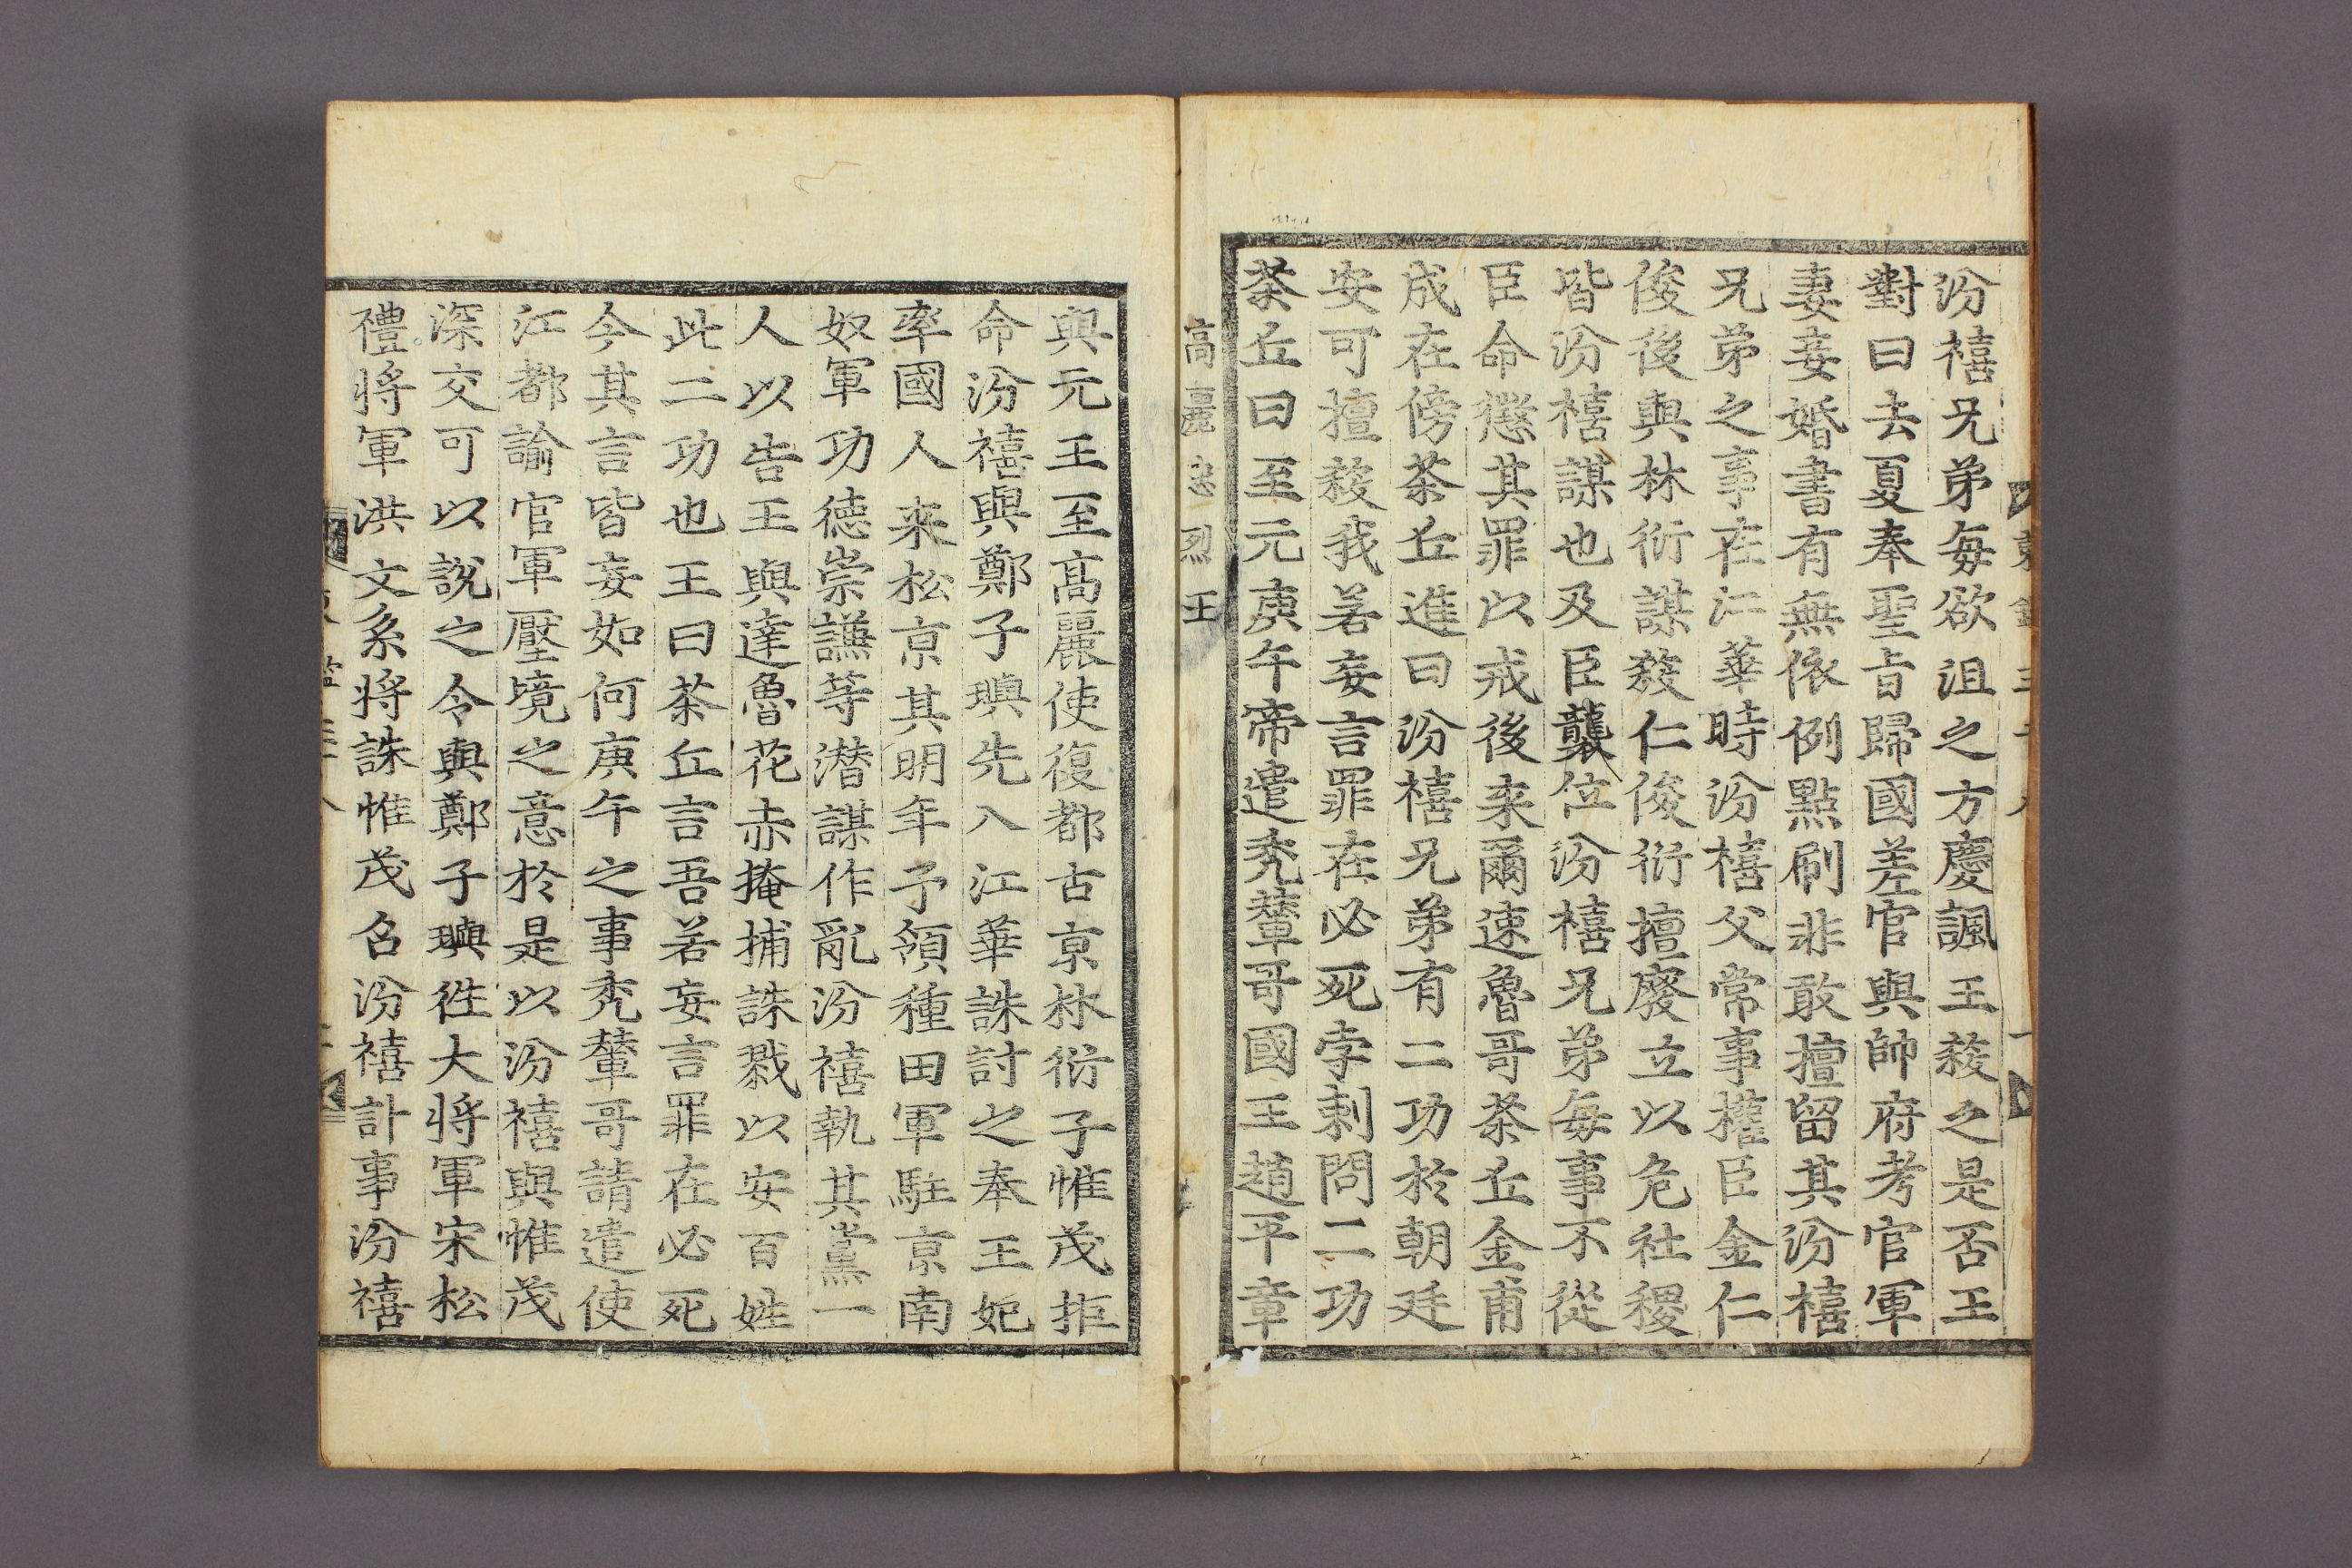 汾禧兄弟每欲沮之方慶諷王殺之是否王
對曰去夏奉聖旨歸國差官與帥府考官軍
妻妾婚書有無依例點刷非敢擅留其汾禧
兄弟之事在江華時汾禧父常事權臣金仁
俊後與林衍謀殺仁俊衍擅廢立以危社稷
皆汾禧謀也及臣襲位汾禧兄弟每事不從
臣命懲其罪以戒後来爾速魯哥茶丘金甫
成在傍茶丘進曰汾禧兄弟有二功於朝廷
安可擅殺我若妄言罪在必死孛剌問二功
茶丘曰至元庚午帝遣禿輦哥國王趙平章
高麗忠烈王
與元王至髙麗使復都古京林衍子惟茂拒
命汾禧與鄭子璵先入江華誅討之奉王妃
率國人来松京其明年予領種田軍駐京南
奴軍功德崇謙等潜謀作亂汾禧執其黨一
人以告王與達魯花赤掩捕誅戮以安百姓
此二功也王曰茶丘言吾若妄言罪在必死
今其言皆妄如何庚午之事禿輦哥請遣使
江都諭官軍壓境之意於是以汾禧與惟茂
深交可以說之令與鄭子璵徃大將軍宋松
禮將軍洪文系將誅惟茂召汾禧計事汾禧